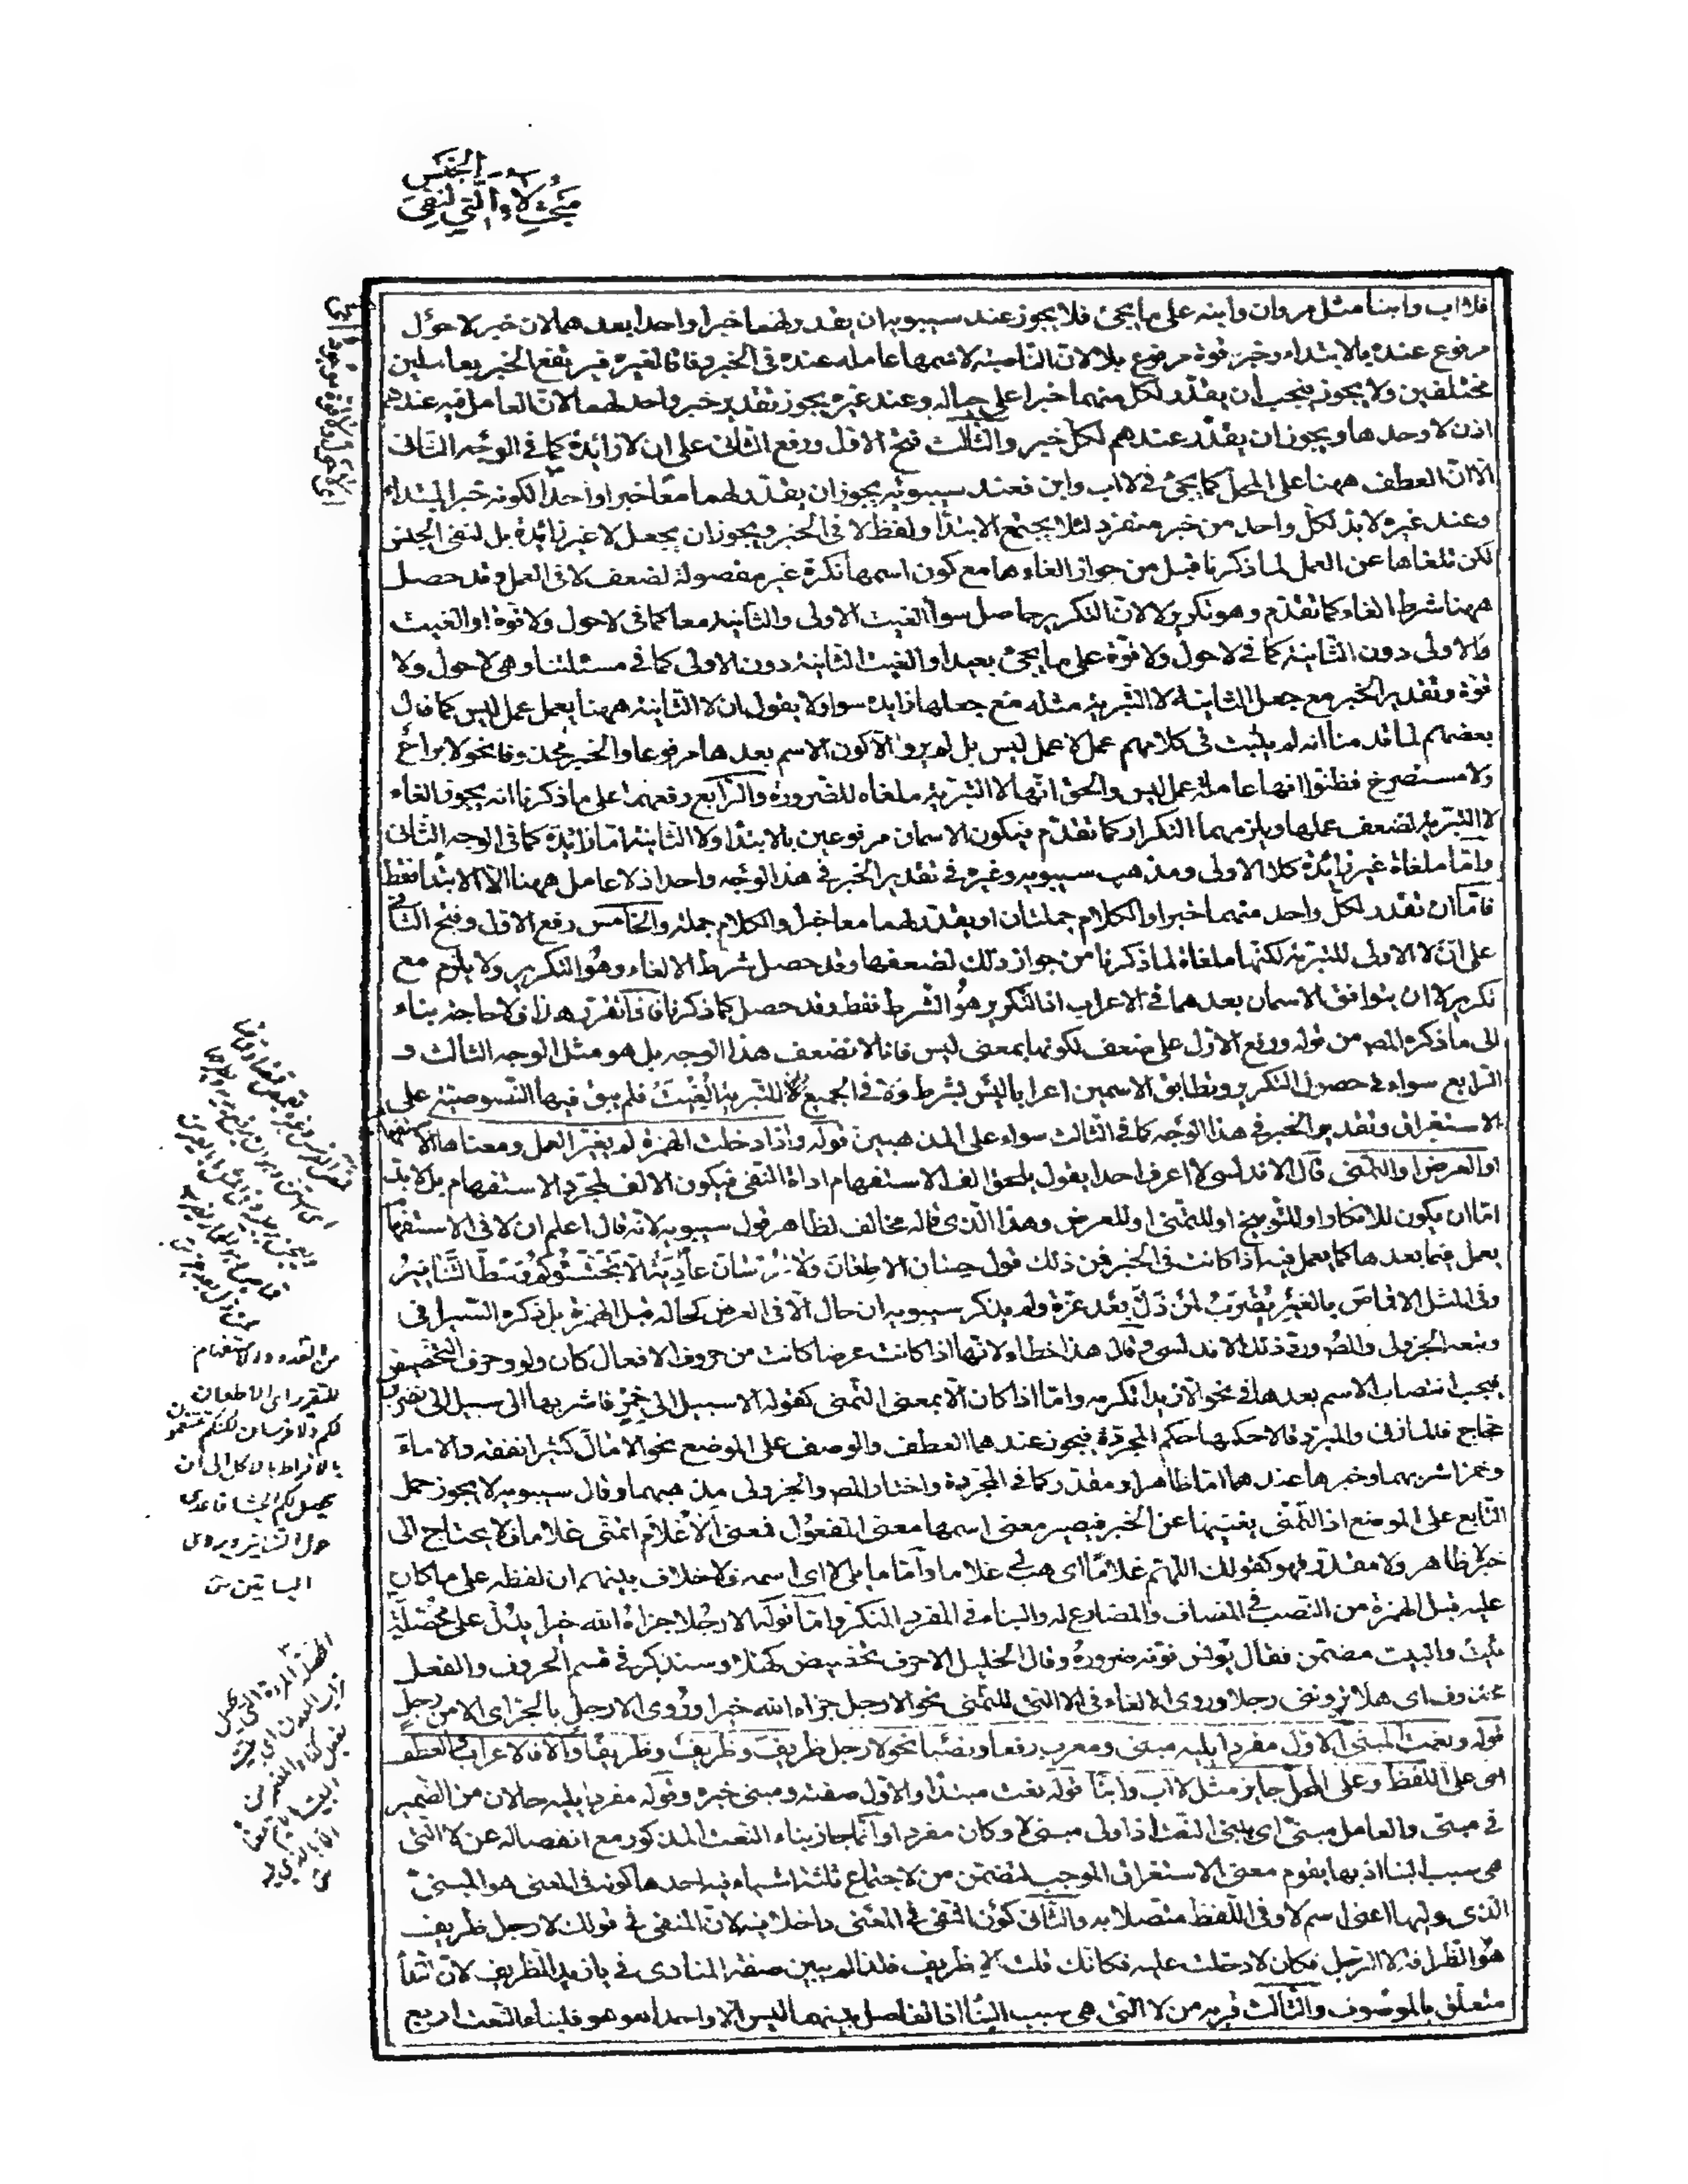 مبحث لاء التي لنفى الجنس
فلا اب وابنا مثل مروان وابنه على ما يجئ فلا يجوز عند سيبويه ان يقدر لهما خبرا واحدا بعدهما لان خبر لا حول
مرفوع عنده بالابتداء وخبر قوة مرفوع بلا لان الناصبة لاسمها عاملة عنده فى الخبر وفاقا لغيره فيرتفع الخبر بعاملين
مختلفين ولا يجوز فيجب ان يقدر لكل منهما خبرا على حياله وعند غيره يجوز تقدير خبر واحد لهما لان العامل فيه عندهم
اذن لا وحدها ويجوز ان يقدر عندهم لكل خبر والثالث فتح الاول ورفع الثانى على ان لا زائدة كما فى الوجه الثانى
الا ان العطف ههنا على المحل كما يجئ فى لا اب وابن فعند سيبويه يجوز ان يقدر لهما معا خبرا واحدا لكونه خبر المبتداء
وعند غيره لا بد لكل واحد من خبر منفرد لئلا يجتمع الابتدا ولفظ لا فى الخبر ويجوز ان يجعل لا غير زائدة بل لنفى الجنس
لكن نلغاها عن العمل لما ذكرنا قبل من جواز الغاءها مع كون اسمها نكرة غير مفصولة لضعف لا فى العمل وقد حصل
ههنا شرط الغاء كما تقدم وهو تكرير لا لان التكرير حاصل سواء الغيت الاولى والثانية معا كما فى لا حول ولا قوة او الغيت
الاولى دون الثانية كما فى لا حول ولا قوة على ما يجئ بعيد او الغيت الثانية دون الاولى كما فى مسئلتنا وهى لا حول ولا
قوة وتقدير الخبر مع جعل الثانية لا التبرية مثله مع جعلها زايدة سواء ولا يقول ان لا الثانية ههنا يعمل عمل ليس كما قال
بعضهم لما قدمنا انه لم يثبت فى كلامهم عمل لا عمل ليس بل لم يرو الا كون الاسم بعدها مرفوعا والخبر محذوفا نحو لا براح
ولا مستصرخ فظنوا انها عاملة عمل ليس والحق انها لا التبرية ملغاه للضرورة والرابع رفعهما على ما ذكرنا انه يجوز الغاء
لا التبرية لضعف عملها ويلزمها التكرار كما تقدم فيكون الاسمان مرفوعين بالابتدا ولا الثانية اما زائدة كما فى الوجه الثانى
واما ملغاة غير زائدة كلا الاولى ومذهب سيبويه وغيره فى تقدير الخبر فى هذا الوجه واحد اذ لا عامل ههنا الا الابتدا فقط
فاما ان تقدر لكل واحد منهما خبرا والكلام جملتان او يقدر لهما معا خبرا والكلام جملة والخامس رفع الاول وفتح الثانى
على ان لا الاولى للتبرية لكنها ملغاة لما ذكرنا من جواز ذلك لضعفها وقد حصل شرط الالغاء وهو التكرير ولا يلزم مع
تكرير لا ان يتوافق الاسمان بعدهما فى الاعراب اذ التكرير هو الشرط فقط وقد حصل كما ذكرنا فاذا تقرر هذا فلا حاجة بناء
الى ما ذكره المص من قوله ورفع الاول على ضعف لكونها بمعنى ليس فانا لا نضعف هذا الوجه بل هو مثل الوجه الثالث و
الرابع سواء فى حصول التكرير وتطابق الاسمين اعرابا ليس بشرط
الاستغراق وتقدير الخبر فى هذا الوجه كما فى الثالث سواء على المذهبين قوله واذا دخلت الهمزة لم يغير العمل ومعناها الاستفهام
او العرض او التمنى قال الاندلسى لا اعرف احدا يقول يلحق الف الاستفهام اداة النفى فيكون الالف لمجرد الاستفهام بل لا بد
اما ان يكون للانكار او للتوبيخ او للتمنى او للعرض وهذا الذى قاله مخالف لظاهر قول سيبويه لانه قال اعلم ان لا فى الاستفهام
يعمل فيما بعدها كما يعمل فيه اذا كانت فى الخبر فمن ذلك قول حسان الا طعان ولا فرسان عادية الا تجشؤكم وسط التنانير
وفى المثل الا قماص بالعير يضرب لمن ذل بعد عزة ولم يذكر سيبويه ان حال الا فى العرض كحاله قبل الهمزة بل ذكره السيرافى
وتبعه الجزولى والمص ورد ذلك الاندلسى وقال هذا خطاء لانها اذا كانت عرضا كانت من حروف الافعال كان ولو وحرف التحضيض
فيجب انتصاب الاسم بعدها فى نحو الا زيدا تكرمه واما اذا كان الا بمعنى التمنى كقوله الا سبيل الى خمر فاشربها الى سبيل الى نصر بن
حجاج فللمازنى والمبرد قالا حكمها حكم المجردة فيجوز عندهما العطف والوصف على الموضع نحو الا مال كثير انفقه والا ماء
وخمرا شربهما وخبرها عندهما اما ظاهر او مقدر كما فى المجردة واختار المص والجزولى مذهبهما وقال سيبويه لا يجوز حمل
التابع على الموضع اذ التمنى يغنيها عن الخبر فيصير معنى اسمها معنى المفعول فمعنى الا غلام اتمنى غلاما فلا يحتاج الى
خبر ظاهر ولا مقدر فهو كقولك اللهم غلاما اى هب لى غلاما واما ما يلى لا اى اسمه فلا خلاف بينهم ان لفظه على ما كان
عليه قبل الهمزة من النصب فى المضاف والمضارع له والبناء فى المفرد المنكر واما قوله الا رجلا جزاه الله خيرا يدل على محصلة
تبيت والبيت مضمن فقال يونس نونه ضرورة وقال الخليل الا حرف تحضيض كهلا وسنذكر فى قسم الحروف والفعل
محذوف اى هلا ترونى رجلا وروى الالغاء فى الا التى للتمنى نحو الا رجل جزاه الله خيرا وروى الا رجل بالجر اى الا من رجل
قوله ونعت المبنى الاول مفردا يليه مبنى ومعرب رفعا ونصبا نحو لا رجل ظريف وظريف وظريفا والا فالاعراب والعطف
اى على اللفظ وعلى المحل جايز مثل لا اب وابنا قوله نعت مبتدا والاول صفته ومبنى خبره وقوله مفردا يليه حالان من الضمير
فى مبنى والعامل مبنى اى يبنى النعت اذا ولى مبنى لا وكان مفردا وانما جاز بناء النعت المذكور مع انفصاله عن لا التى
هى سبب البنا اذ بها يقوم معنى الاستغراق الموجب لتضمن من لاجتماع ثلثة اشياء فيه احدها كونه فى المعنى هو المبنى
الذى وليها اعنى اسم لا وفى اللفظ متصلا به والثانى كون النفى فى المعنى داخلا فيه لان المنفى فى قولك لا رجل ظريف
هو الظرافة لا الرجل فكان لا دخلت عليه فكانك قلت لا ظريف فلذا لم يبن صفة المنادى فى يا زيد الظريف لان الندا
متعلق بالموصوف والثالث قربه من لا التى هى سبب البنا اذ الفاصل بينهما ليس الا واحدا هو هو فلبناء النعت اربع
من العدو والاستفهام
للتقرير اى الا طعان
لكم ولا فرسان لكنكم تنعمون
بالافراط بالاكل الى ان
يحصل لكم الجشا قاعدى
حول التنانير ويروى